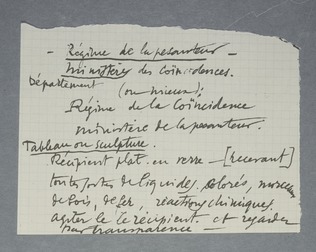 — Régime de la pesanteur —
Ministères des coïncidences.
Département
(ou mieux):
Régime de la Coïncidence
ministère de la pesanteur.
Tableau ou sculpture.
Récipient plat. en verre — [recevant]
toutes sortes de liquides. Colorés, morceaux
de bois, de fer, réactions chimiques.
agiter le récipient. et regarder
par transparence —